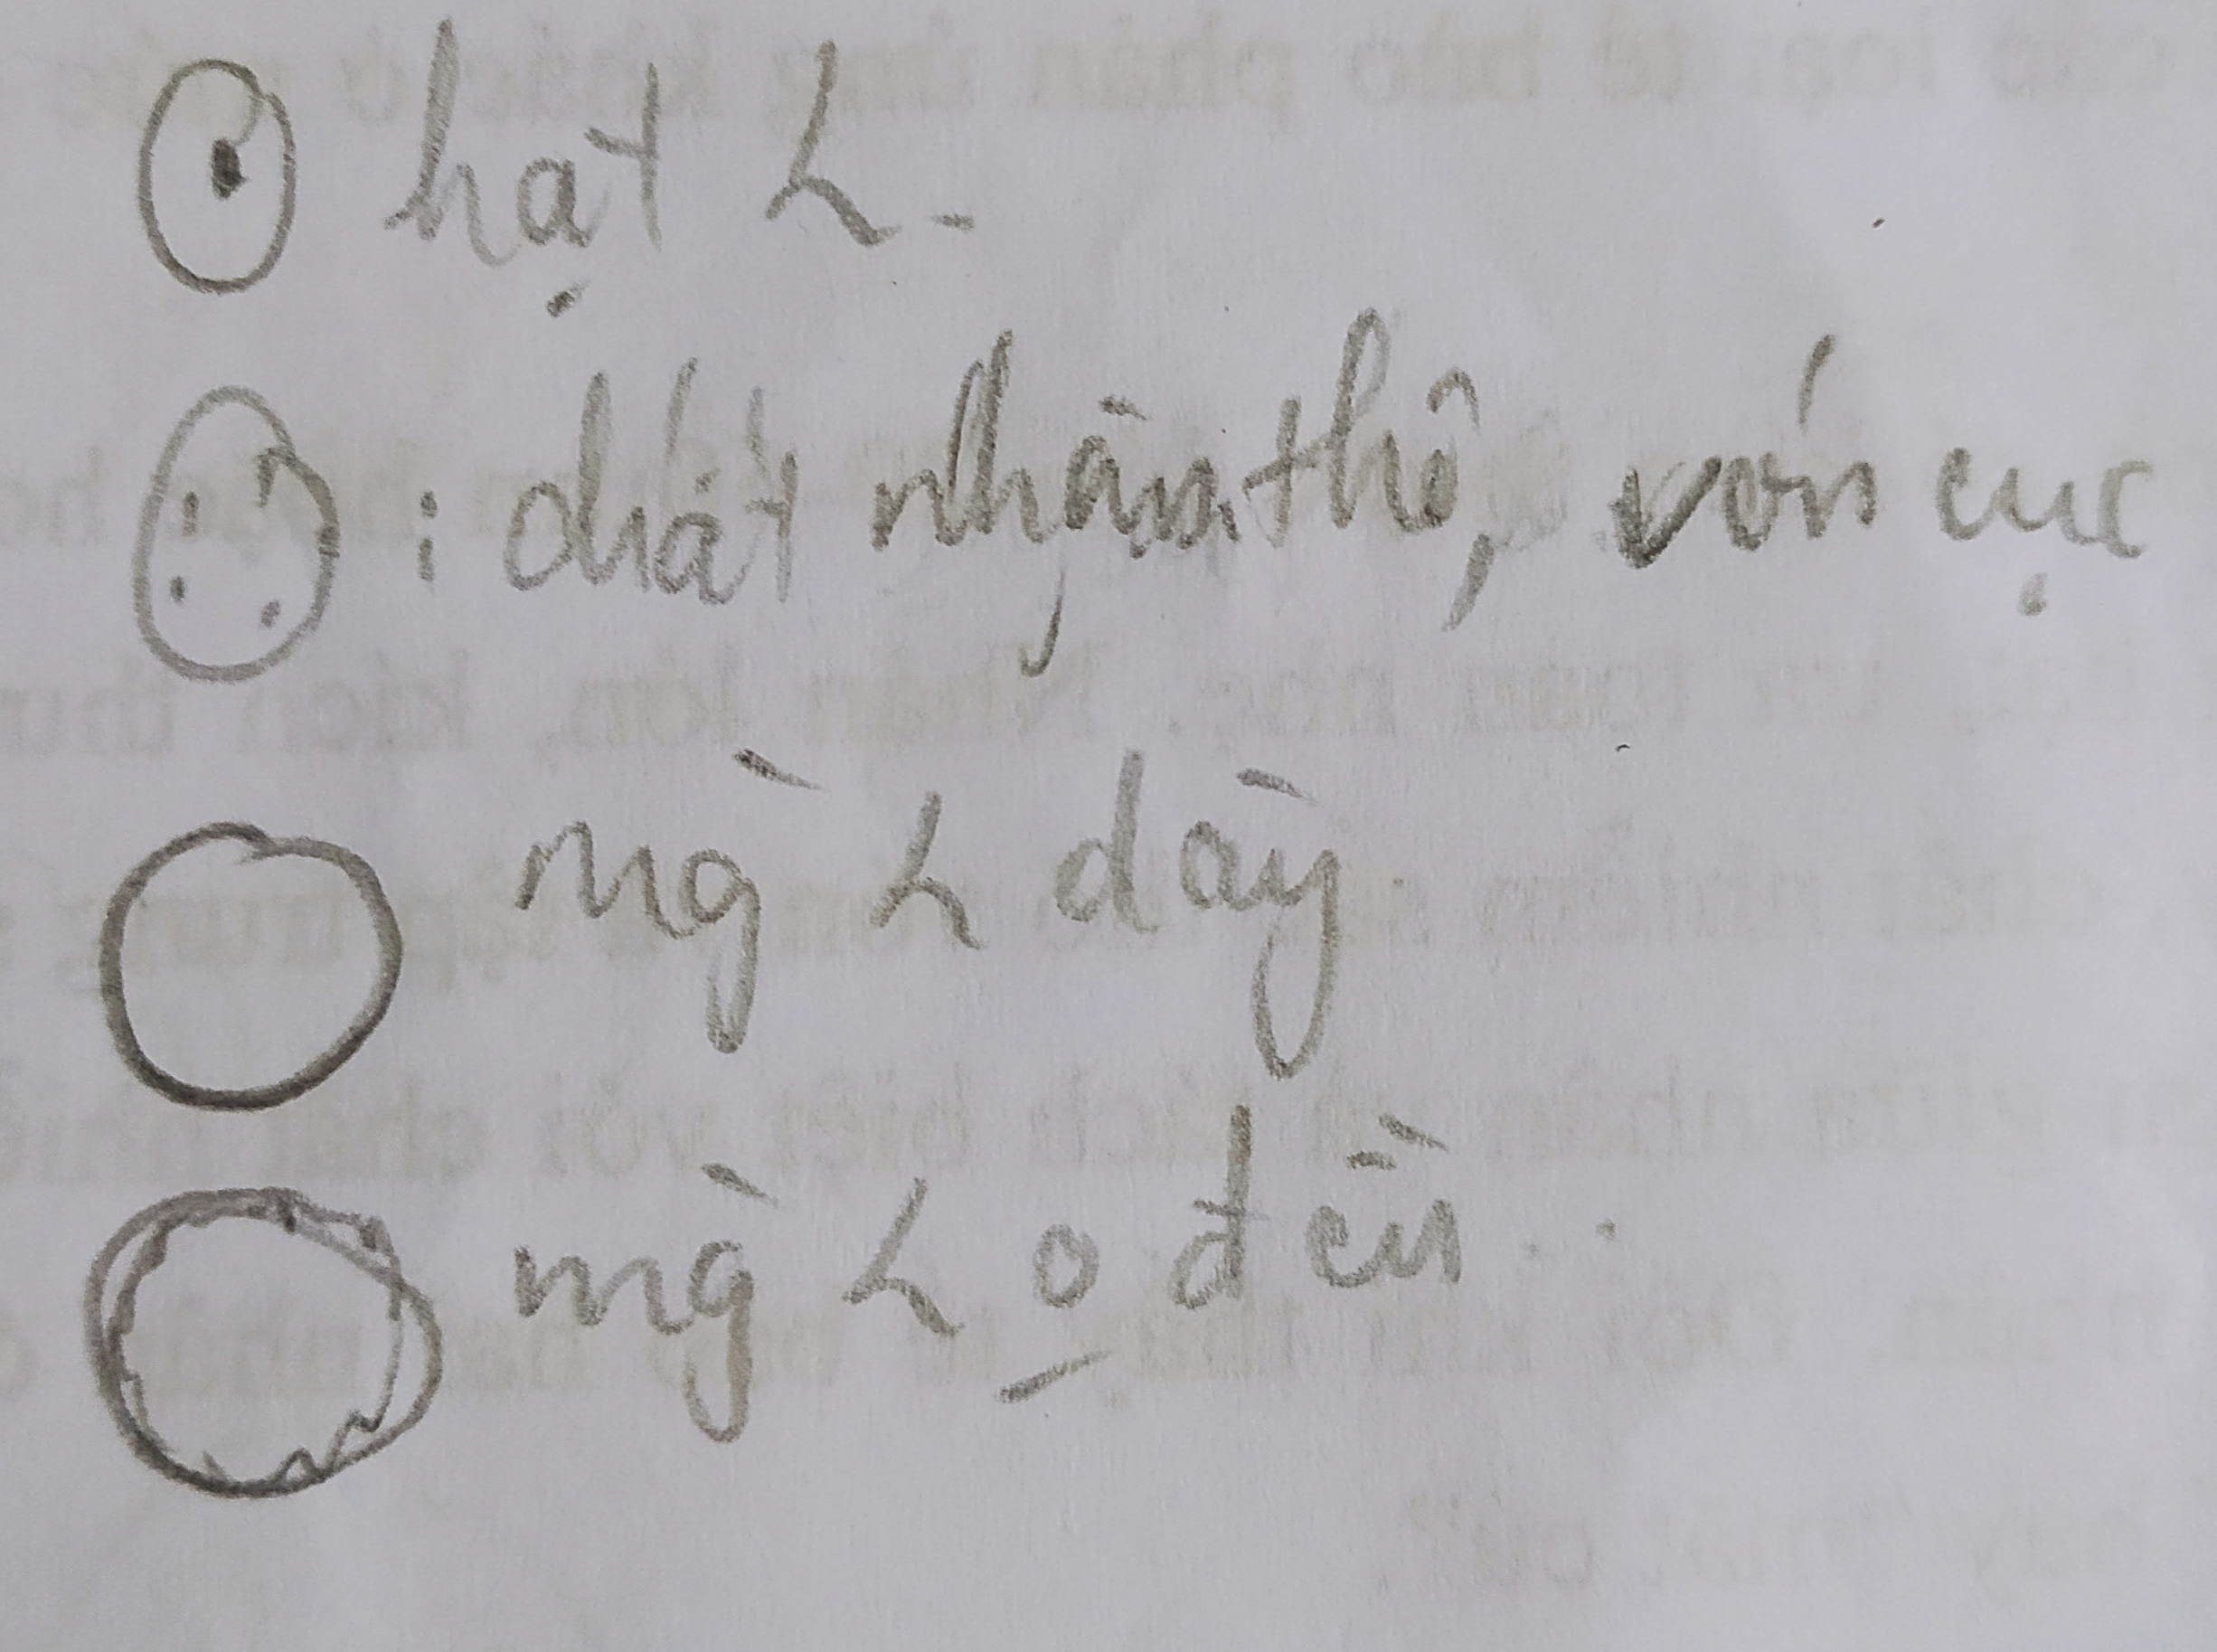 hạt L -
: chất nhân thô, vón cục
mg̀ L dày
mg̀ L o đều